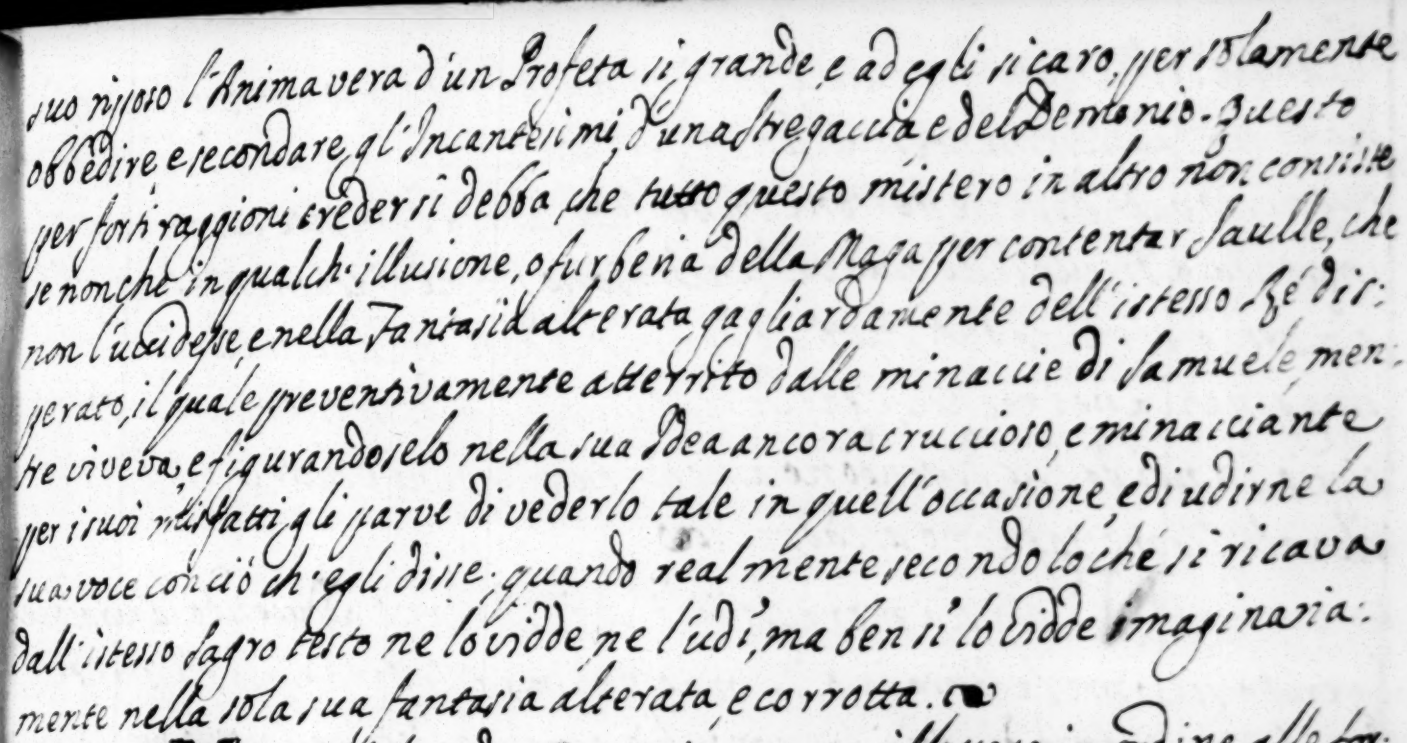 suo riposo l'Anima vera d'un Profeta si grande, e ad egli si caro, per solamente
obbedire, e secondare gl'Incantesimi d'una stregaccia e del Demonio. Questo
per forti raggioni creder si debba, che tutto questo mistero in altro non consiste
se non che in qualch'illusione, o furberia della Maga per contentar Saulle, che
non l'uccidesse, e nella Fantasia alterata gagliardamente dell'istesso Ré dis:
perato, il quale preventivamente atterrito dalle minaccie di Samuele, men:
tre viveva, e figurandoselo nella sua Idea ancora cruccioso, e minacciante
per i suoi misfatti, gli parve di vederlo tale in quell'occasione, e di udirne la
sua voce con ciò ch'egli disse. quando realmente, secondo lo ché si ricava
dall'istesso Sagro testo ne lo vidde, ne l'udì, ma ben sì lo vidde imaginaria:
mente nella sola sua fantasia alterata, e corrotta.